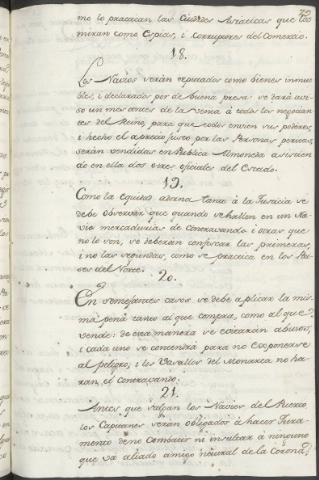 mo lo practican las Ciudades Asiaticas que los
miran como Espias, i corruptores del Comercio.
18.
Los Navios serán reputados como bienes inmue
bles, i declarados por de buena presa: se dará avi-
so un mes antes de la venta á todos los negocian
tes del Reino, para que todos envien sus poderes,
i hecho el aprecio justo por las Personas peritas,
serán vendidas en Publica Almoneda asistien
do en ella dos tres oficiales del Estado.
19.
Como la equidad adorna tanto á la Justicia se
debe observár que quando se hallen en un Na
vio mercadurias de Contravando i otras que
no lo son, se deberán confiscar las primeras,
i no las segundas, como se practica en los Paí-
ses del Norte.
20.
En semejantes casos se debe aplicar la mis
ma pena tanto al que compra, como al que
vende: de esta manera se evitarán abusos,
i cada uno se contendrá para no exponerse
al peligro, i los Vasallos del Monarca no ha-
rán el contravando.
21.
Antes que salgan los Navios del Puerto
los Capitanes serán obligados á hacer Jura
mento de no combatir ni insultar á ninguno
que sea aliado amigo neutral de la Corona